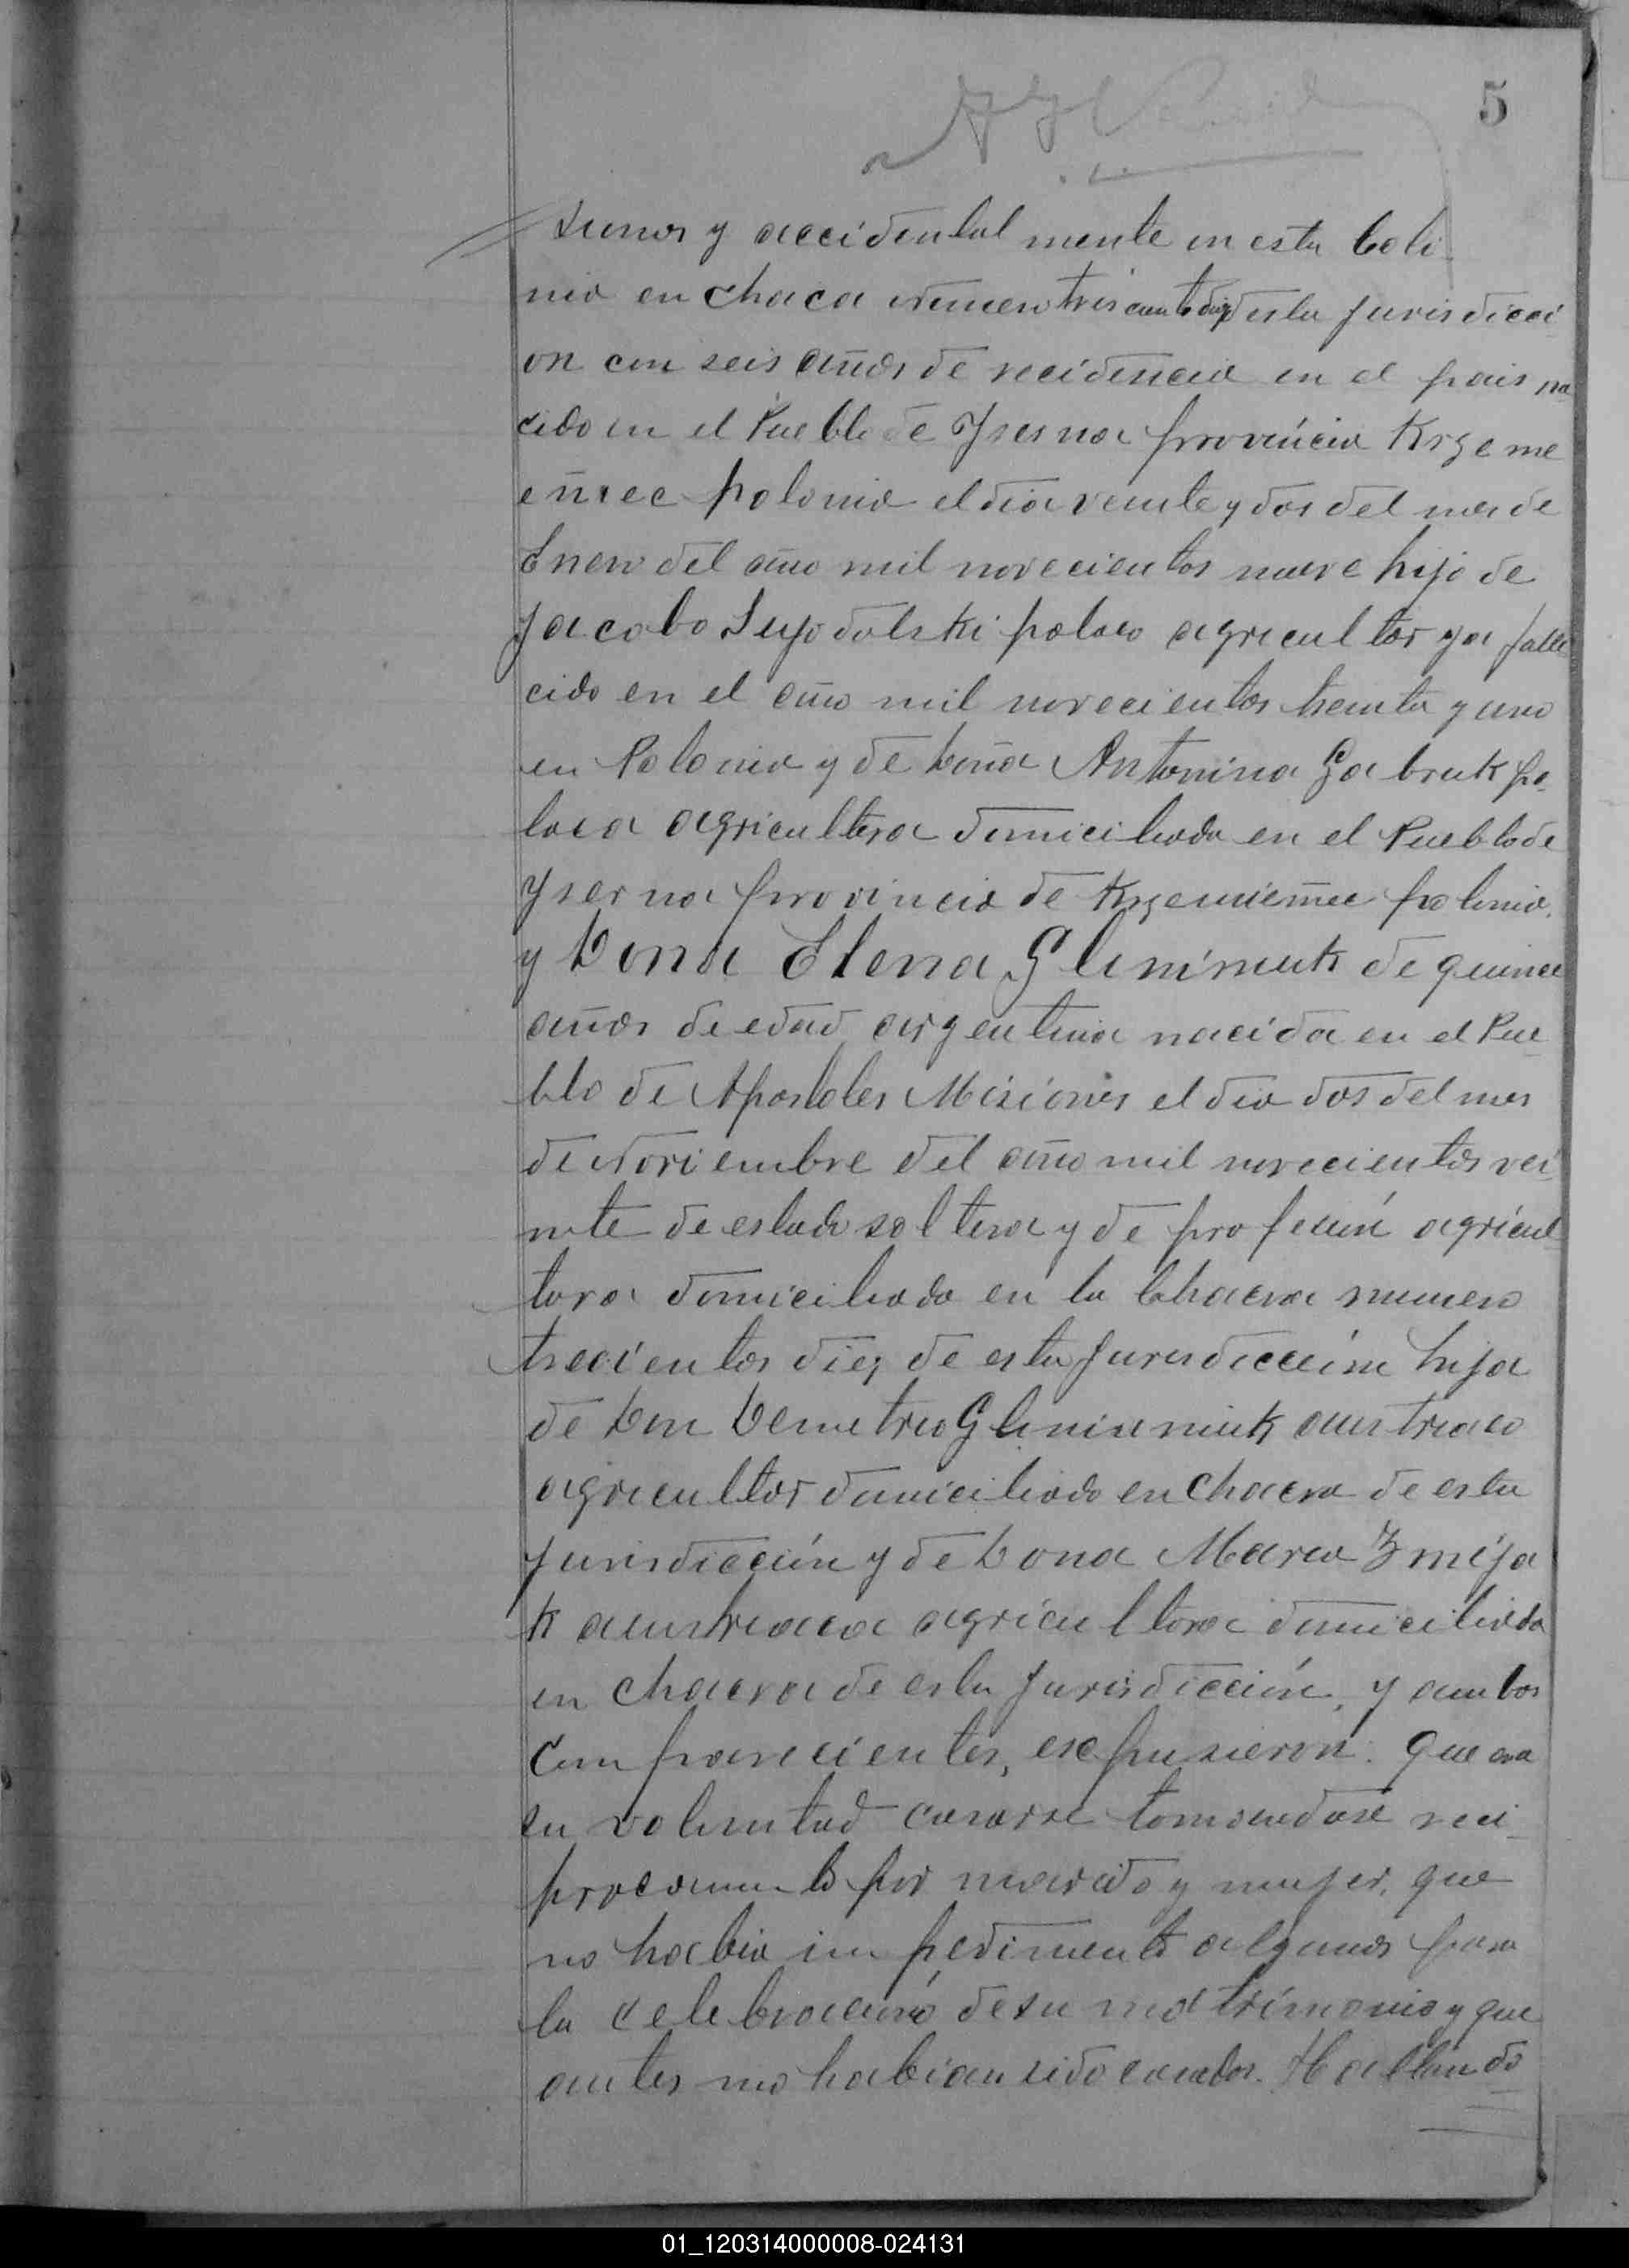 5
y accidental mente en esta Colo
nia en chaca Numero trescientodiez desta Jurisdicci
on con seis años de recidencia en el pais na
cido en el Pueblo de Yserna provincia Krzeme
eñiec polonia el dia veinte y dos del mes de
Enero del año mil novecientos nueve hijo de
Jacobo Supodolski polaco agricultor ya falle
cido en el año mil novecientos treinta y uno
en Polonia y de Doña Antonina Gabruk po-
laca agricultora domiciliada en el Pueblo de
Yserna provincia de Krzemieñiec polonia.
y Dona Elena Glininiuk de quince
años de edad argentina nacida en el Pue-
blo de Apostoles Misiones el dia dos del mes
de Noviembre del año mil novecientos vei-
nte de estado soltera y de profesión agricul-
tora domiciliada en la Chacra numero
trecientos diez de esta Jurisdicción hija
de Don Demetrio austriaco
agricultor domiciliado en Chacra de esta
Jurisdicción y de Dona Maria Zmija
k austriaca agricultora domiciliada
en chacra de esta Jurisdicción, y ambos
comparecientes, expusieron: Que era
su voluntad casarse tomandose reci-
procamente por marido y mujer, que
no habia impedimento algunos para
la celebración de su matrimonio y que
antes no habian sido casados. Hallando
01_120314000008-024131